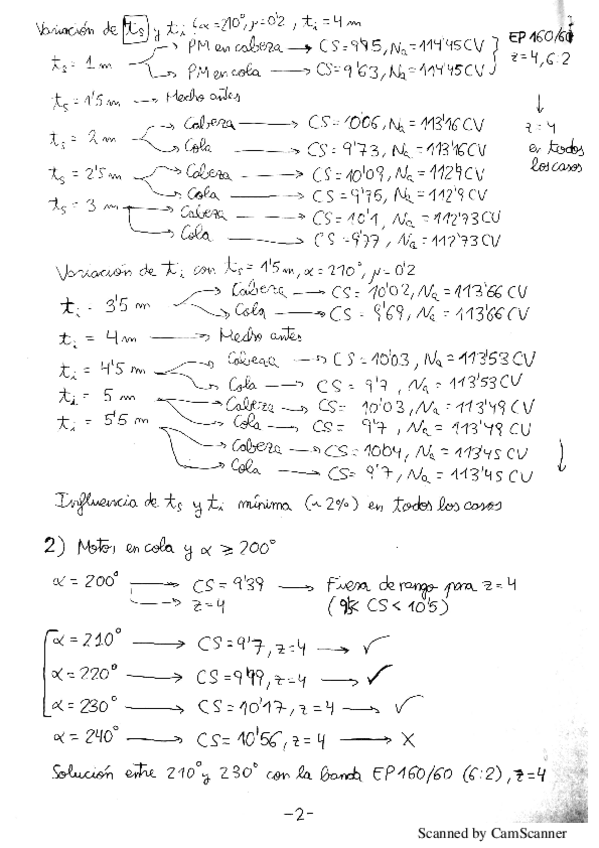 Variación de ts y ti (α=210°, μ=0'2, ti=4m
ts= 1m → PM en cabeza → CS=9'95, Na=114'45CV
→ PM en cola → CS=9'63, Na=114'45CV
EP 160/60
z=4, 6:2
ts=1'5m → Hecho antes
ts= 2m → Cabeza → CS=10'06, Na=113'16CV
→ Cola → CS=9'73, Na=113'16CV
z=4
en todos
los casos
ts=2'5m → Cabeza → CS=10'09, Na=112'9CV
→ Cola → CS=9'75, Na=112'9CV
ts= 3m → Cabeza → CS=10'1, Na=112'73CV
→ Cola → CS=9'77, Na=112'73CV
Variación de ti con ts=1'5m, α=210°, μ=0'2
ti = 3'5 m → Cabeza → CS=10'02, Na=113'66 CV
→ Cola → CS=9'69, Na=113'66 CV
ti = 4m → Hecho antes
ti = 4'5m → Cabeza → CS=10'03, Na=113'53CV
→ Cola → CS=9'7, Na=113'53CV
ti = 5 m → Cabeza → CS= 10'03, Na=113'49CV
→ Cola → CS= 9'7, Na=113'49 CV
ti = 5'5m → Cabeza → CS=10'04, Na=113'45CV
→ Cola → CS= 9'7, Na=113'45 CV
Influencia de ts y ti mínima (~2%) en todos los casos
2) Motor en cola y α ≥ 200°
α=200° → CS=9'39 → Fuera de rango para z=4
→ z=4 (9'5< CS<10'5)
α=210° → CS=9'7, z=4 → ✓
α=220° → CS=9'99, z=4 → ✓
α=230° → CS=10'17, z=4 → ✓
α=240° → CS=10'56, z=4 → X
Solución entre 210° y 230° con la banda EP160/60 (6:2), z=4
-2-
Scanned by CamScanner